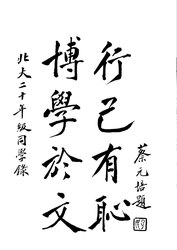 行己有恥
博學於文
蔡元培題
北大二十年級同學錄